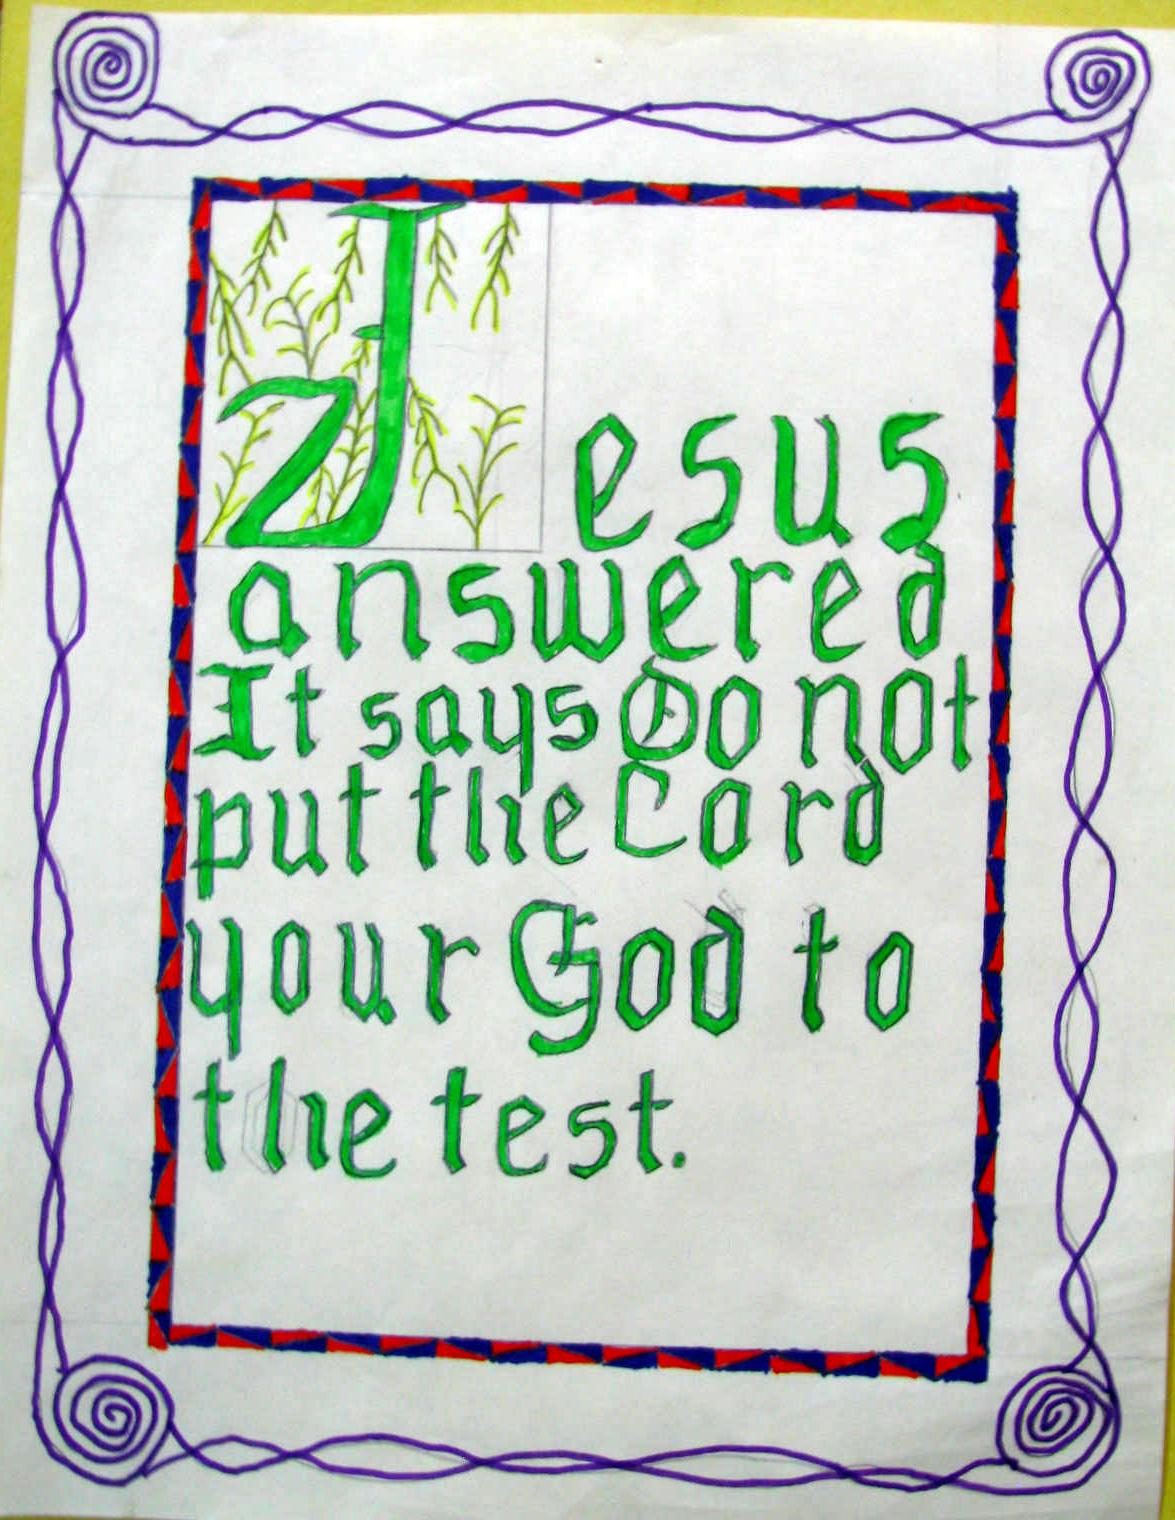 Jesus
answered
It says Do not
put the Lord
your God to
the test.